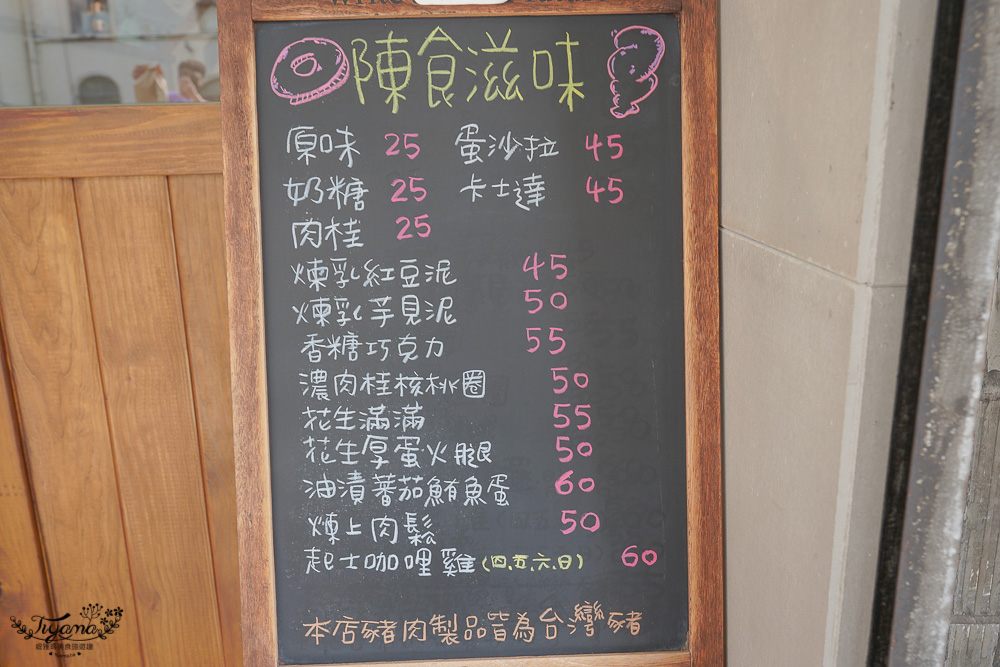 陳食滋味
原味 25 蛋沙拉 45
奶糖 25 卡士達 45
肉桂 25
煉乳紅豆泥 45
煉乳芋見泥 50
香糖巧克力 55
濃肉桂核桃圈 50
花生滿滿 55
花生厚蛋火腿 50
油漬蕃茄鮪魚蛋 60
煉上肉鬆 50
起士咖哩雞(四.五.六.日) 60
本店豬肉製品皆為台灣豬
Tiyama